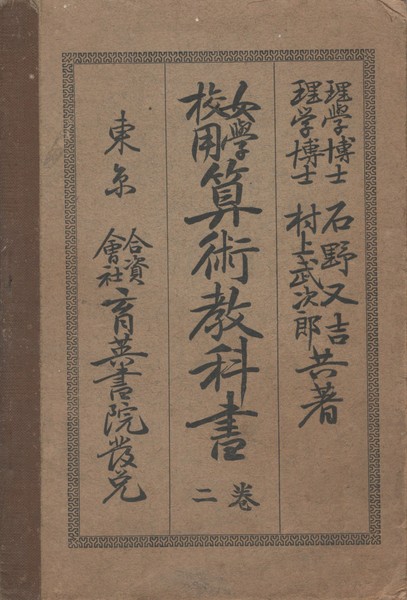 理學博士 石野又吉
理学博士 村上武次郎 共著
女學校用 算術教科書
卷二
東京 合資會社 育英書院發兌